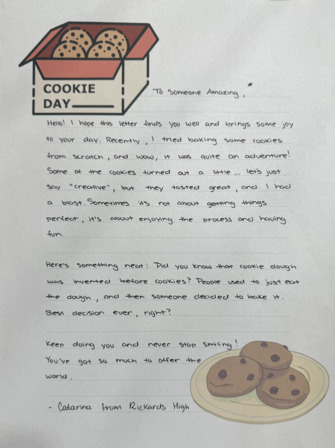 COOKIE
DAY
To Someone Amazing,
Hello! I hope this letter finds you well and brings some joy
to your day. Recently, I tried baking some cookies
from scratch, and wow, it was quite an adventure!
Some of the cookies turned out a little... let's just
say "creative", but they tasted great, and I had
a blast. Sometimes it's not about getting things
perfect, it's about enjoying the process and having
fun.
Here's something neat: Did you know that cookie dough
was invented before cookies? People used to just eat
the dough, and then someone decided to bake it.
Best decision ever, right?
Keep doing you and never stop smiling!
You've got so much to offer the
world.
- Catarina from Rickards High